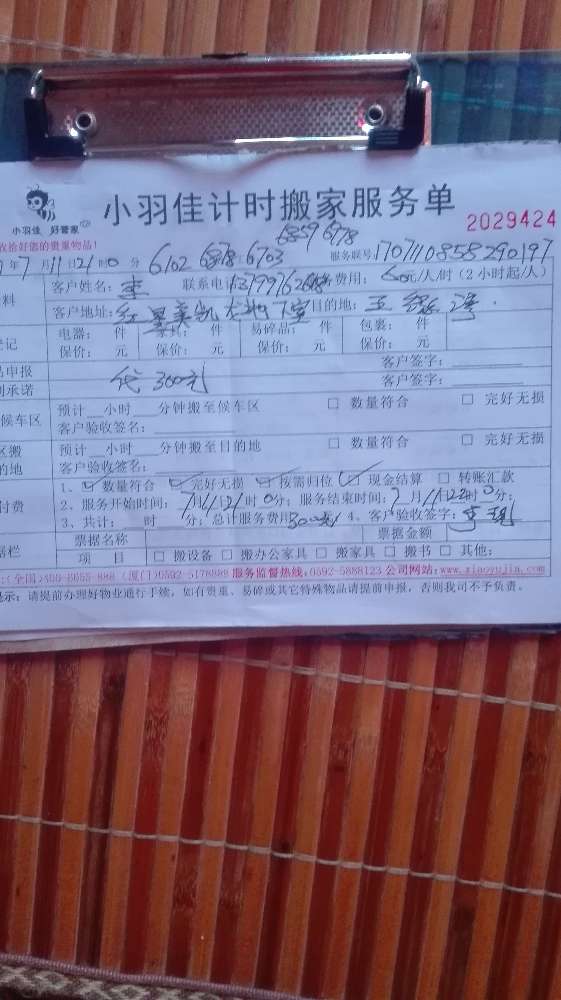 小羽佳 好管家
小羽佳计时搬家服务单
2029424
收拾好您的贵重物品！
6859 6778
年7月11日21时0分 6102 6878 6703 服务联号：1707110858290197
客户姓名：李 联系电 费用：60元/人/时（2小时起/人）
客户地址：红星美凯 目的地：
电器： 件 件 易碎品： 件 包裹： 件
保价： 元 保价： 元 保价： 元 保价： 元
申报 客户签字：
承诺 代 300元 客户签字：
候车区 预计__小时__分钟搬至候车区 □ 数量符合 □ 完好无损
客户验收签名：
区搬 预计__小时__分钟搬至目的地 □ 数量符合 □ 完好无损
的地 客户验收签名：
1、☑ 数量符合 ☑ 完好无损 ☑ 按需归位 ☑ 现金结算 □ 转账汇款
付费 2、服务开始时间：7月11日21时0分；服务结束时间：7月11日22时0分；
3、共计： 时 分；总计服务费用300元 4、客户验收签字：
据栏 票据名称 票据金额
项 目 □ 搬设备 □ 搬办公家具 □ 搬家具 □ 搬书 □ 其他：
(全国)400-8655-888 (厦门)0592-5178888 服务监督热线：0592-5888123 公司网站：www.xiaoyujia.com
提示：请提前办理好物业通行手续，如有贵重、易碎或其它特殊物品请提前申报，否则我司不予负责。